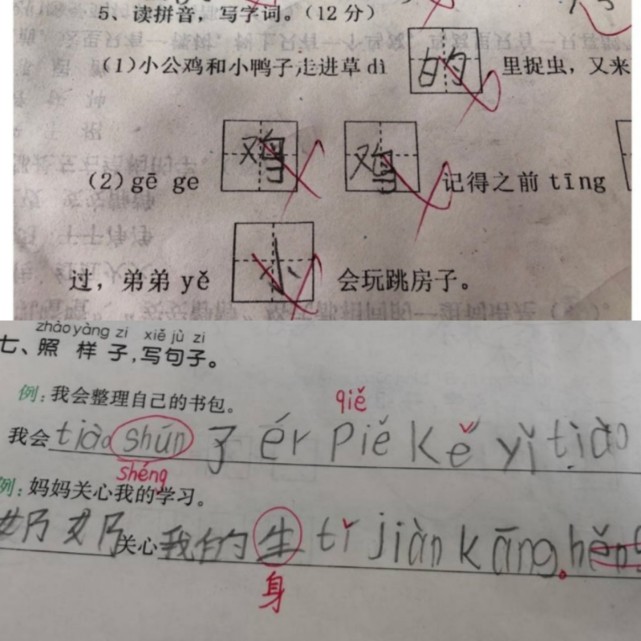 5、读拼音，写字词。（12分）
（1）小公鸡和小鸭子走进草 dì 的 里捉虫，又米
（2）gē ge 鸡 鸡 记得之前 tīng
过，弟弟 yě 小 会玩跳房子。
zhào yàng zi xiě jù zi
七、照样子，写句子。
例：我会整理自己的书包。
qiě
我会 tiào shún 了 ér piě kě yǐ tiào
shéng
例：妈妈关心我的学习。
奶奶关心我的生 tǐ jiàn kāng
身